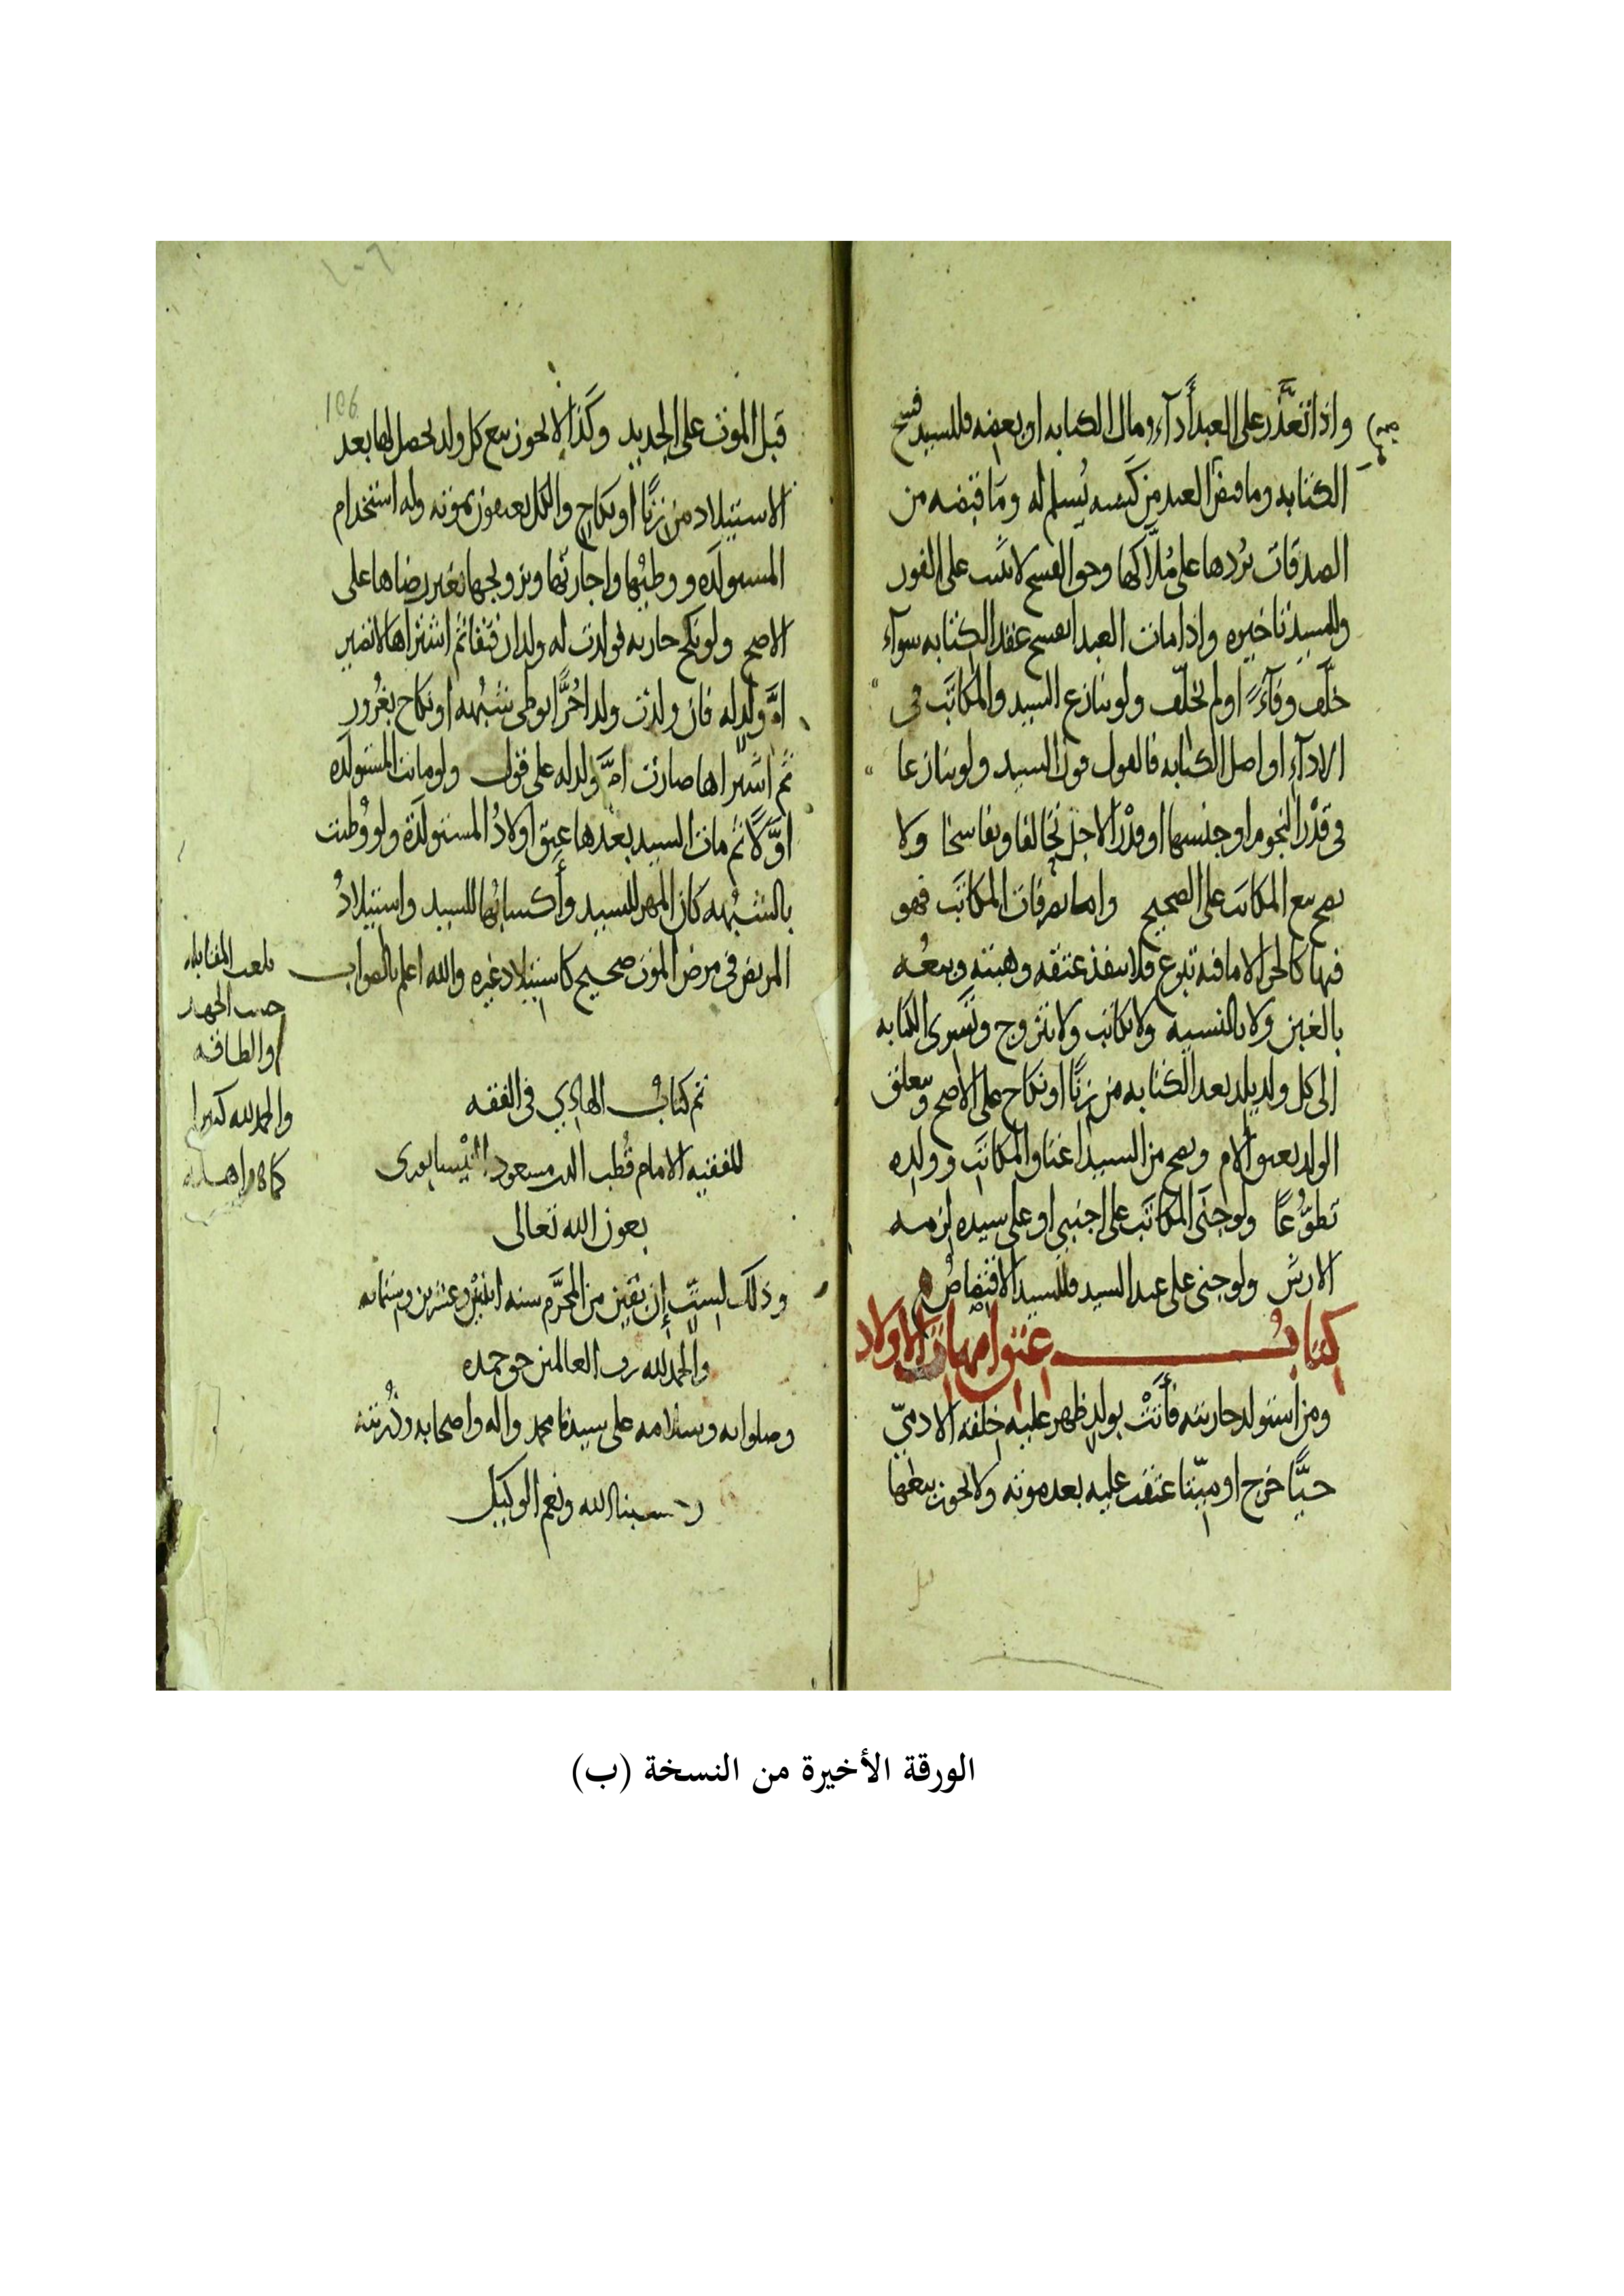 واذا تعذّر على العبد أدآء مال الكتابه او بعضه فللسيد فسخ
الكتابه وما قبض العبد من كسبه يُسلم له وما قبضه من
الصدقات يردها على مُلّاكها وحق الفسخ لا يثبت على الفور
وللسيد تاخيره واذا مات العبد انفسخ عقد الكتابه سوآء
خلّف وفآءً او لم يخلّف ولو تنازع السيد والمكاتَب في
الادآء او اصل الكتابه فالقول قول السيد ولو تنازعا
في قَدْر النجوم او جنسها او قدْر الاجل تحالفا وتفاسخا ولا
يصح بيع المكاتب على الصحيح واما تصرفات المكاتَب فهو
فيها كالحر الا ما فيه تبرع فلا ينفذ عتقه وهبته وبيعُه
بالغبن ولا بالنسيه ولا يكاتب ولا يتزوج وتَسرى الكتابه
الى كل ولد يلد بعد الكتابه من زنًا او نكاح على الاصح ويعتق
الولد بعتق الام ويصح من السيد اعتاق المكاتَب وولده
تطوُّعًا ولو جنَى المكاتَب على اجنبي او على سيده لزمه
الارش ولو جنى على عبد السيد فللسيد الاقتصاصُ
كتابُ عتق امهات الاولاد
ومن استولد جاريته فأتَتْ بولدٍ ظهر عليه خلقه الادميّ
حيًّا خرج او ميّتا عتقت عليه بعد موته ولا يجوز بيعها
106
قبل الموت على الجديد وكذا لا يجوز بيع كل ولد يحصل لها بعد
الاستيلاد من زنًا او نكاحٍ والكل يعتقون بموته وله استخدام
المستولَده ووطيُها واجارتُها وتزويجها بغير رضاها على
الاصح ولو نكح جاريه فولدت له ولدا رقيقا ثم اشتراها لا تصير
امَّ ولد له فان ولدت ولدا حُرًّا بوطى شبُهه او نكاح بغُرور
ثم اشتراها صارت امَّ ولد له على قول ولو ماتت المستولَده
اوّلًا ثم مات السيد بعدها عتق اولادُ المستولَدة ولو وُطئت
بالشبُهه كان المهر للسيد وأكسابُها للسيد واستيلادُ
المريض في مرض الموت صحيح كاستيلاد غيره والله اعلم بالصواب
بلغت المقابله
حسب الجهد
والطاقه
والحمد لله كثيرا
كما هو اهله
تم كتابُ الهادي في الفقه
للفقيه الامام قُطب الدين مسعود النيْسابورى
بعون الله تعالى
وذلك لستٍّ إن بقين من المحرَّم سنه اثنين وعشرين وستمائه
والحمد لله رب العالمين حق حمده
وصلواته وسلامه على سيدنا محمد واله واصحابه وذُريته
حسبنا الله ونعم الوكيل
الورقة الأخيرة من النسخة (ب)